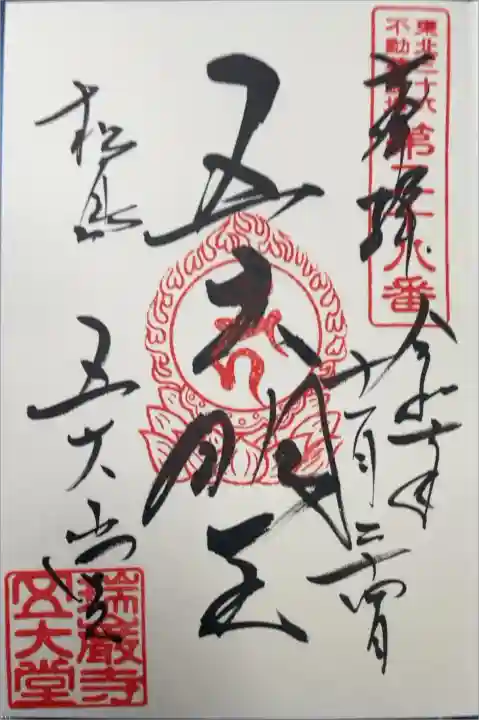 東北三十六
不動尊霊場
第二十八番
奉拝
五大明王
松島
五大堂
瑞巌寺
五大堂